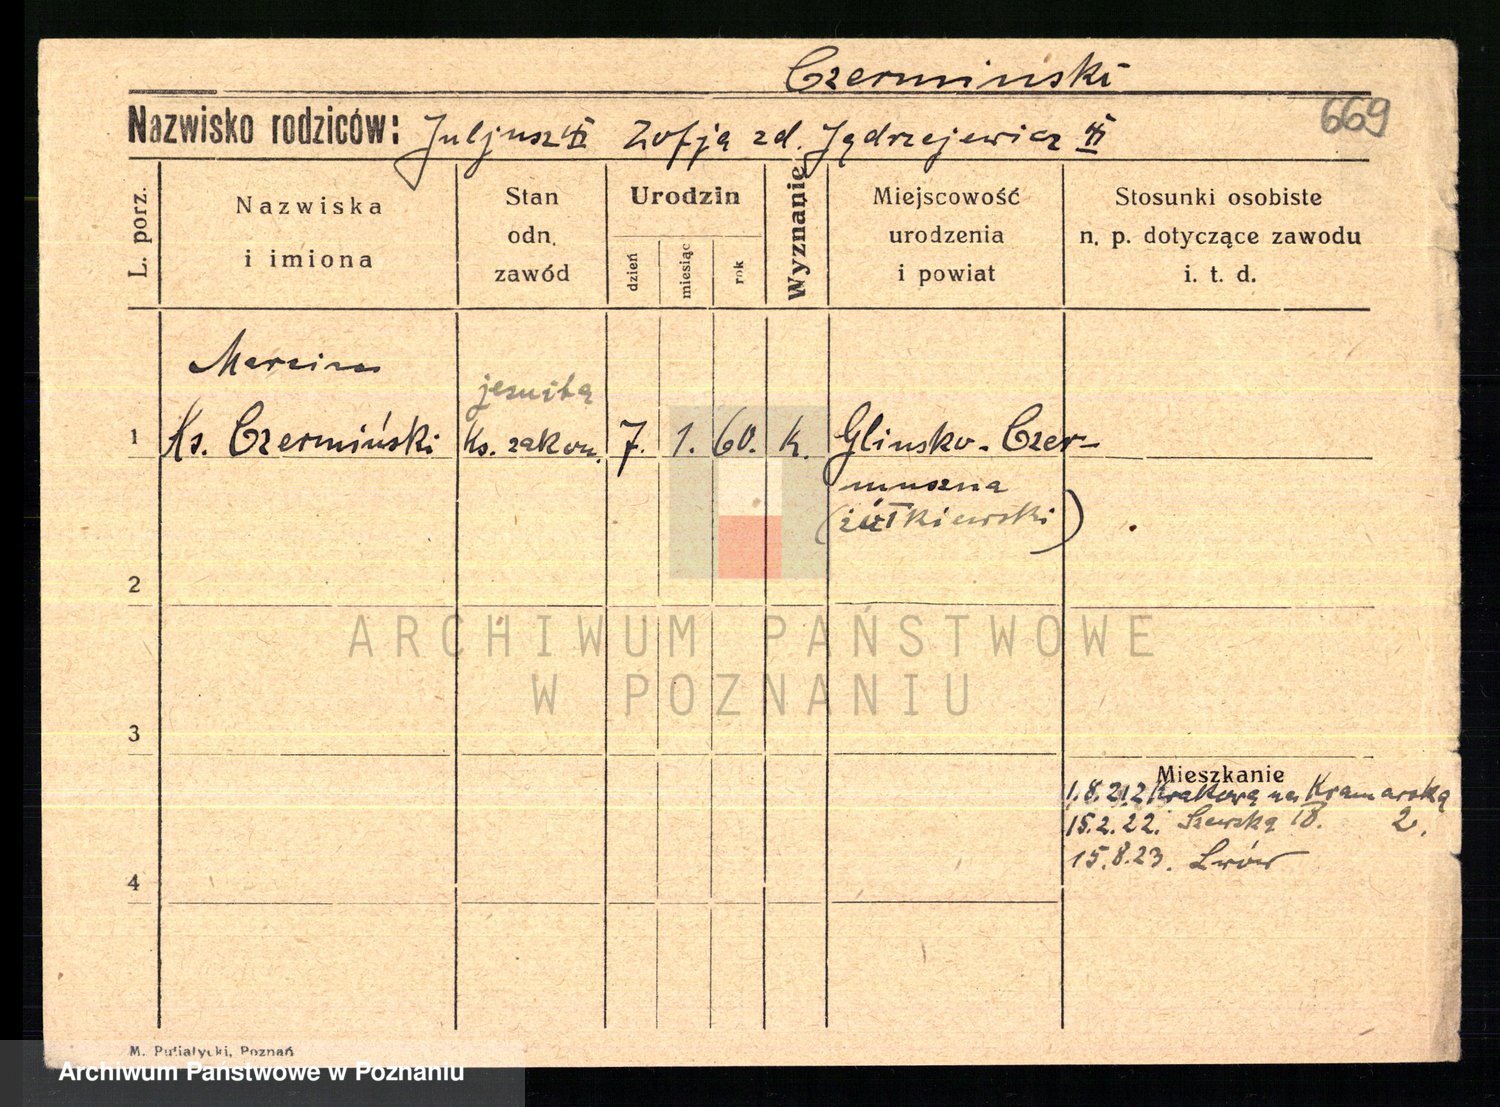 Czerminski
669
Nazwisko rodziców: Juljusz Zofja zd. Jędrzejewicz
L. porz.
Nazwiska
i imiona
Stan
odn.
zawód
Urodzin
dzień
miesiąc
rok
Wyznanie
Miejscowość
urodzenia
i powiat
Stosunki osobiste
n. p. dotyczące zawodu
i. t. d.
Marcin
jesuita
1 Ks. Czermiński Ks. zakon. 7. 1. 60. k. Glinsko-Czer-
muszna
(żółkiewski)
2
ARCHIWUM PAŃSTWOWE
W POZNANIU
3
Mieszkanie
1.8.21. z Krakowa na Kramarską
15.2.22. Szewska 18. 2.
15.8.23. Lwów
4
M. Putiatycki, Poznań
Archiwum Państwowe w Poznaniu